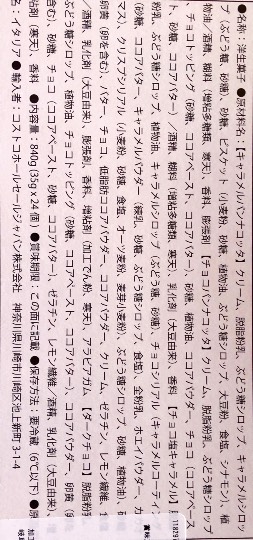 ●名称：洋生菓子 ●原材料名：【キャラメルパンナコッタ】クリーム、脱脂粉乳、ぶどう糖シロップ、キャラメルシロッ
プ（ぶどう糖、砂糖）、砂糖、ビスケット（小麦粉、砂糖、植物油、ぶどう糖シロップ、大豆粉、食塩、シナモン）、植
物油／酒精、糊料（増粘多糖類、寒天）、香料、膨張剤【チョコパンナコッタ】クリーム、脱脂粉乳、ぶどう糖シロップ
、チョコトッピング（砂糖、ココアペースト、ココアバター）、砂糖、植物油、ココアパウダー、チョコ（ココアペース
ト、砂糖、ココアバター）／酒精、糊料（増粘多糖類、寒天）、乳化剤（大豆由来）、香料【チョコ塩キャラメル】
粉乳、ぶどう糖シロップ、植物油、キャラメルシロップ（ぶどう糖、砂糖）、チョコシリアル（キャラメルコーティン
（砂糖、ココアバター、キャラメルパウダー（練乳、砂糖、ぶどう糖シロップ、食塩）、全粉乳、ホエイパウダー、カ
マス）、クリスプシリアル（小麦粉、砂糖、食塩、オーツ麦粉、麦芽小麦粉、ぶどう糖シロップ、砂糖、植物油）、
卵黄（卵を含む）、バター、チョコ、低脂肪ココアパウダー、ココアパウダー、クリーム、ゼラチン、レモン繊維、
／酒精、乳化剤（大豆由来）、膨張剤、香料、増粘剤（加工でん粉、寒天）、アラビアガム【ダークチョコ】脱脂粉
ぶどう糖シロップ、植物油、チョコトッピング（砂糖、ココアペースト、ココアバター）、ココアパウダー、卵黄（
含む）、砂糖、チョコ（ココアペースト、砂糖、ココアバター）、ゼラチン、レモン繊維／酒精、乳化剤（大豆由来）、
粘剤（寒天）、香料 ●内容量：840g（35g x 24個） ●賞味期限：この面に記載 ●保存方法：要冷蔵（6℃以下）●原
名：イタリア ●輸入者：コストコホールセールジャパン株式会社 神奈川県川崎市川崎区池上新町3－1－4
118291
賞味
加工
岐阜